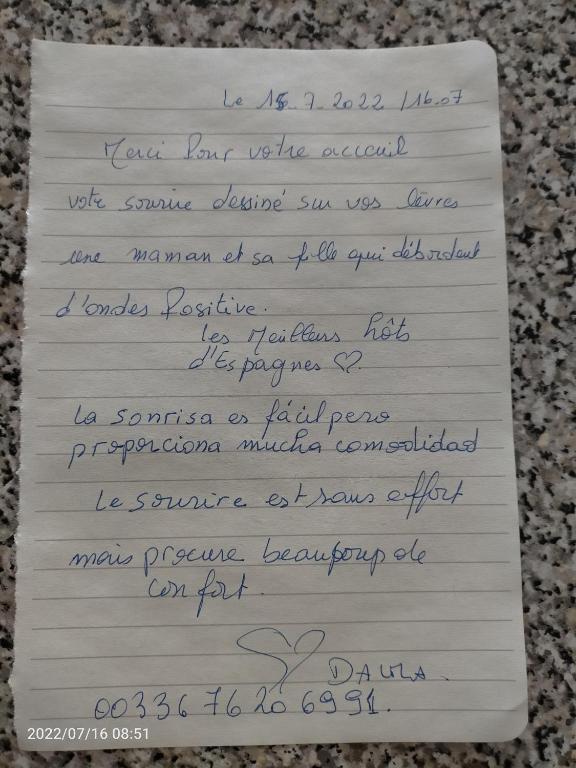 Le 15.7.2022 /16.07
Merci Pour votre acceuil
votre sourire dessiné sur vos lèvres
une maman et sa fille qui débordent
d'ondes Positive.
les Meilleurs hôts
d'Espagnes ♡.
La sonrisa es fácil pero
proporciona mucha comodidad
Le sourire est sans effort
mais procure beaucoup de
confort.
♡ DAWLA.
0033676206991.
2022/07/16 08:51